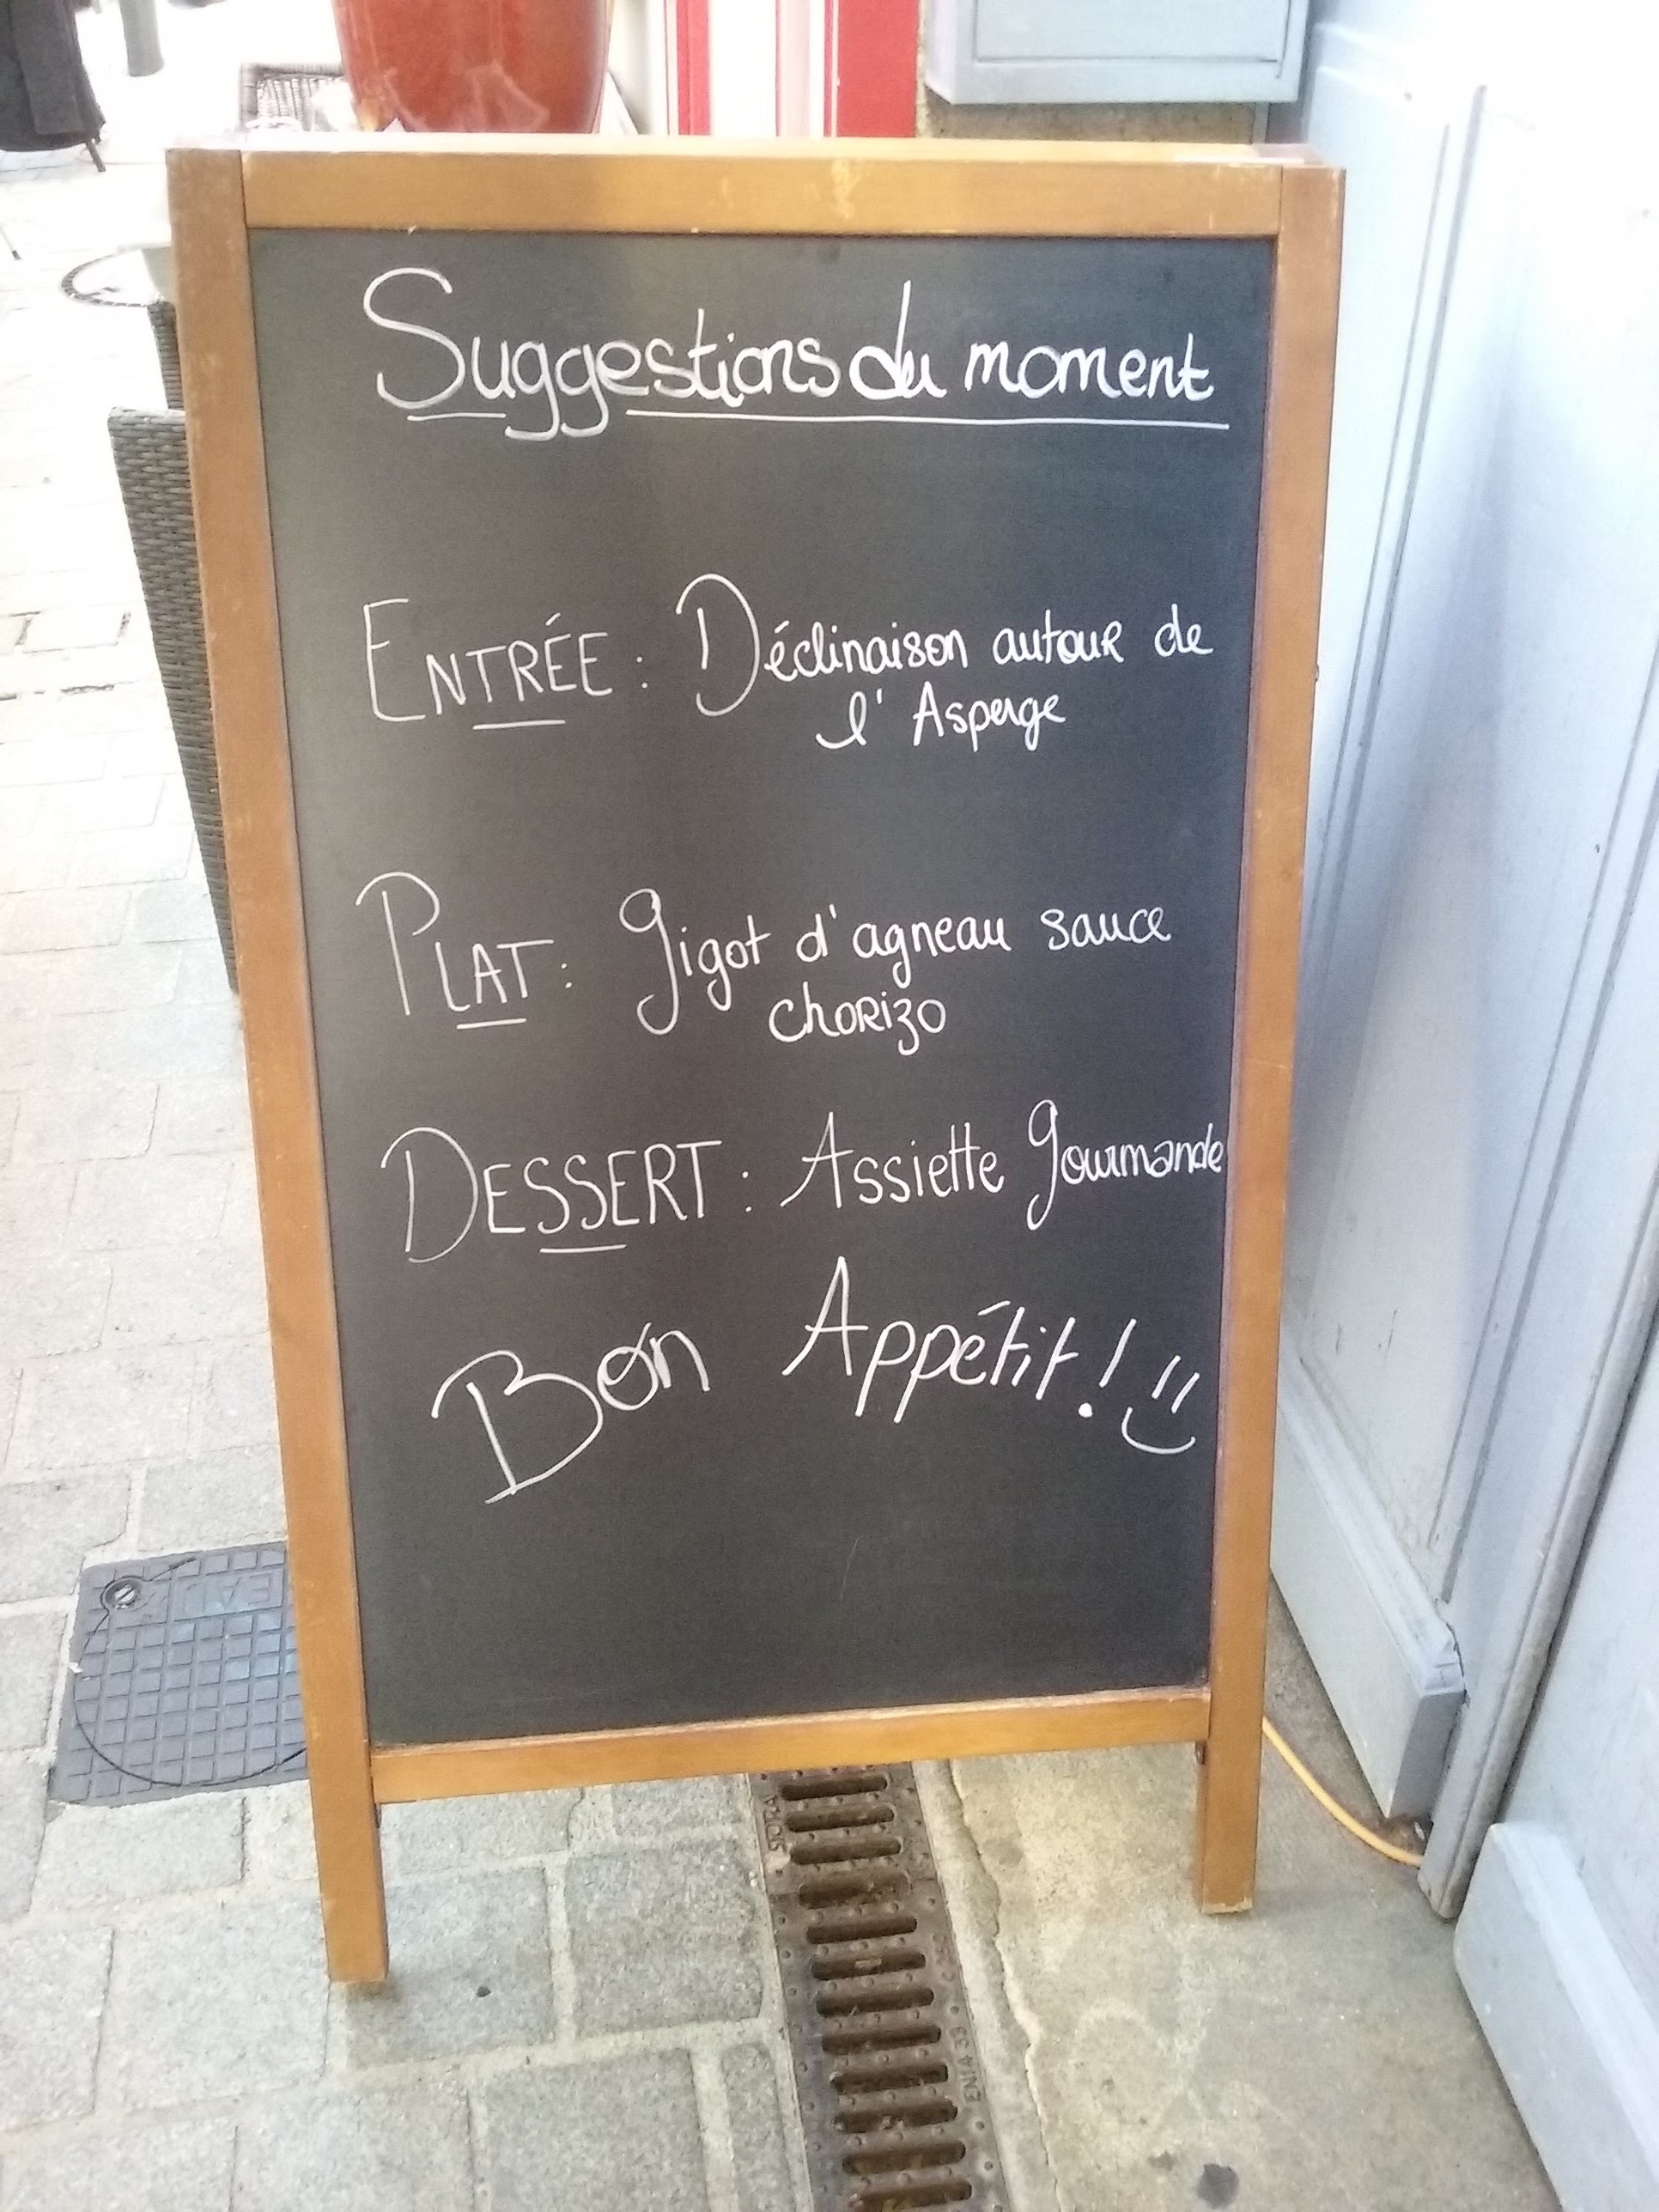 Suggestions du moment
ENTRÉE : Déclinaison autour de
l'Asperge
PLAT : gigot d'agneau sauce
chorizo
DESSERT : Assiette gourmande
Bon Appétit ! =)
EAU